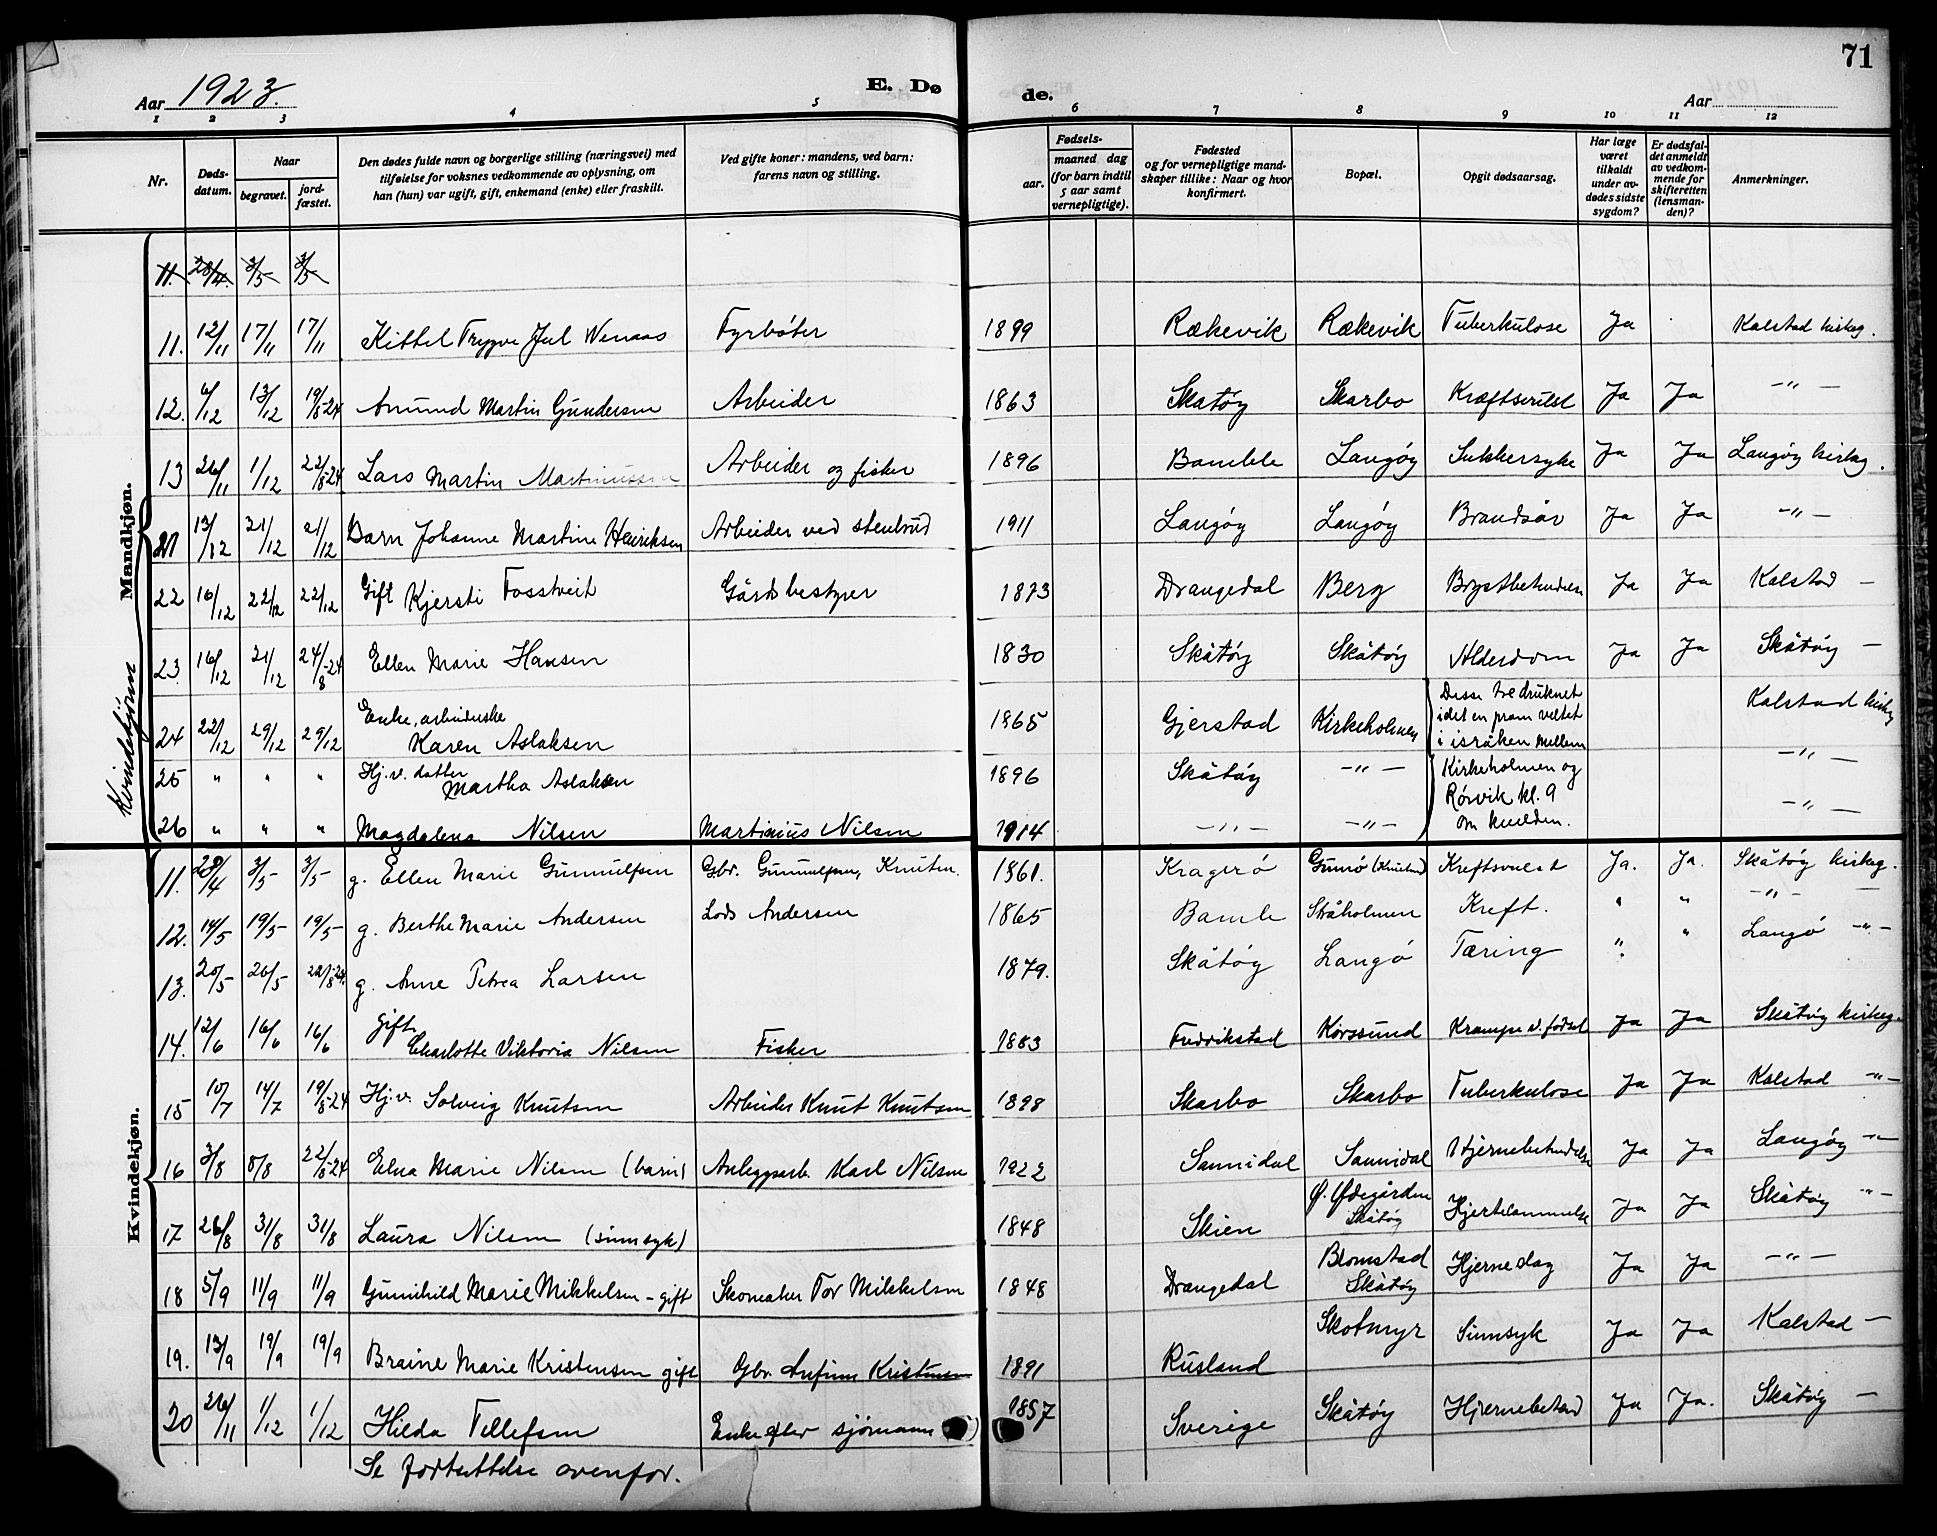 71
Aar 1923.
E. Dø
de.
Aar
1 2 3 4 5 6 7 8 9 10 11 12
Nr.
Døds-datum.
Naar
begravet.
jord-fæstet.
Den dødes fulde navn og borgerlige stilling (næringsvei) med tilføielse for voksnes vedkommende av oplysning, om han (hun) var ugift, gift, enkemand (enke) eller fraskilt.
Ved gifte koner: mandens, ved barn: farens navn og stilling.
Fødsels-
aar.
maaned dag (for barn indtil 5 aar samt vernepligtige).
Fødested og for vernepligtige mand-skaper tillike: Naar og hvor konfirmert.
Bopæl.
Opgit dødsaarsag.
Har læge været tilkaldt under av-dødes sidste sygdom?
Er dødsfal-det anmeldt av vedkom-mende for skifteretten (lensman-den)?
Anmerkninger.
Mandkjøn.
11. 28/4. 3/5 3/5
11. 12/11 17/11 17/11 Kittel Trygve Jul Wenaas Fyrbøter 1899 Rækevik Rækevik Tuberkulose Ja Kalstad kirkeg.
12. 6/12 13/12 19/8-24 Amund Martin Gundersen Arbeider 1863 Skatøy Skarbo Kræftsvulst Ja Ja -"-
13 26/11 1/12 22/8-24 Lars Martin Martinussen Arbeider og fisker 1896 Bamble Langøy Sukkersyke Ja Ja Langøy kirkeg.
Kvindekjønn
21 13/12 21/12 21/12 Barn Johanne Martine Henriksen Arbeider ved stenbrud 1911 Langøy Langøy Brandsår Ja Ja -"-
22 16/12 22/12 22/12 Gift Kjersti Fosstveit Gårdsbestyrer 1873 Drangedal Berg Brystbetendelse Ja Ja Kalstad -
23. 16/12 21/12 24/8-24 Ellen Marie Hansen 1830 Skåtøy Skåtøy Alderdom Ja Ja Skåtøy -
24 22/12 29/12 29/12 Enke, arbeiderske Karen Aslaksen 1865 Gjerstad Kirkeholmen Desse tre druknet idet en pram veltet i isråken mellem Kalstad kirkeg
25 " " " Hj.v. datter Martha Aslaksen 1896 Skåtøy -"- Kirkeholmen og Rørvik kl. 9 -"-
26 " " " Magdalena Nilsen Martinius Nilsen 1914 -"- -"- om kvelden. -"-
Kvindekjøn.
11. 28/4 3/5 3/5 g. Ellen Marie Gunnulfsen Gbr. Gunnulfsen, Knuten. 1861. Kragerø Gumø (Knuten) Kreftsvulst Ja. Ja. Skåtøy kirkeg.
12. 14/5 19/5 19/5 g. Berthe Marie Andersen Lods Andersen 1865 Bamle Stråholmen Kreft. " " -"- -
13. 20/5 26/5 22/8-24. g. Anne Petrea Larsen 1879. Skåtøy Langø Tæring " " Langø -"-
14. 12/6 16/6 16/6 Gift Charlotte Viktoria Nilsen Fisker 1883 Fredrikstad Korssund Krampe v. fødsel Ja Ja Skåtøy kirkeg.
15 10/7 14/7 19/8-24 Hj.v. Solveig Knutsen Arbeider Knut Knutsen 1898 Skarbo Skarbo Tuberkulose Ja Ja Kalstad -"-
16 3/8 8/8 22/8-24 Elna Marie Nilsen (barn) Anleggsarb. Karl Nilsen 1922 Sannidal Sannidal Hjernebetendelse Ja Ja Langøy -"-
17 26/8 31/8 31/8 Laura Nilsen (sinnsyk) 1848 Skien Ø. Ødegården Skåtøy Hjertelammelse Ja Ja Skåtøy -"-
18 5/9 11/9 11/9 Gunnhild Marie Mikkelsen - gift Skomaker Tor Mikkelsen 1848 Drangedal Blomstad Skåtøy Hjerneslag Ja Ja -"-
19. 13/9 19/9 19/9 Braine Marie Kristensen gift Gbr. Anfinn Kristensen 1891 Rusland Skotmyr Sinnsyk Ja Ja Kalstad -
20 26/11 1/12 1/12 Hilda Tellefsen Enke efter sjømann 1857 Sverige Skåtøy Hjernebetend Ja Ja. Skåtøy -
Se fortsettelse ovenfor.